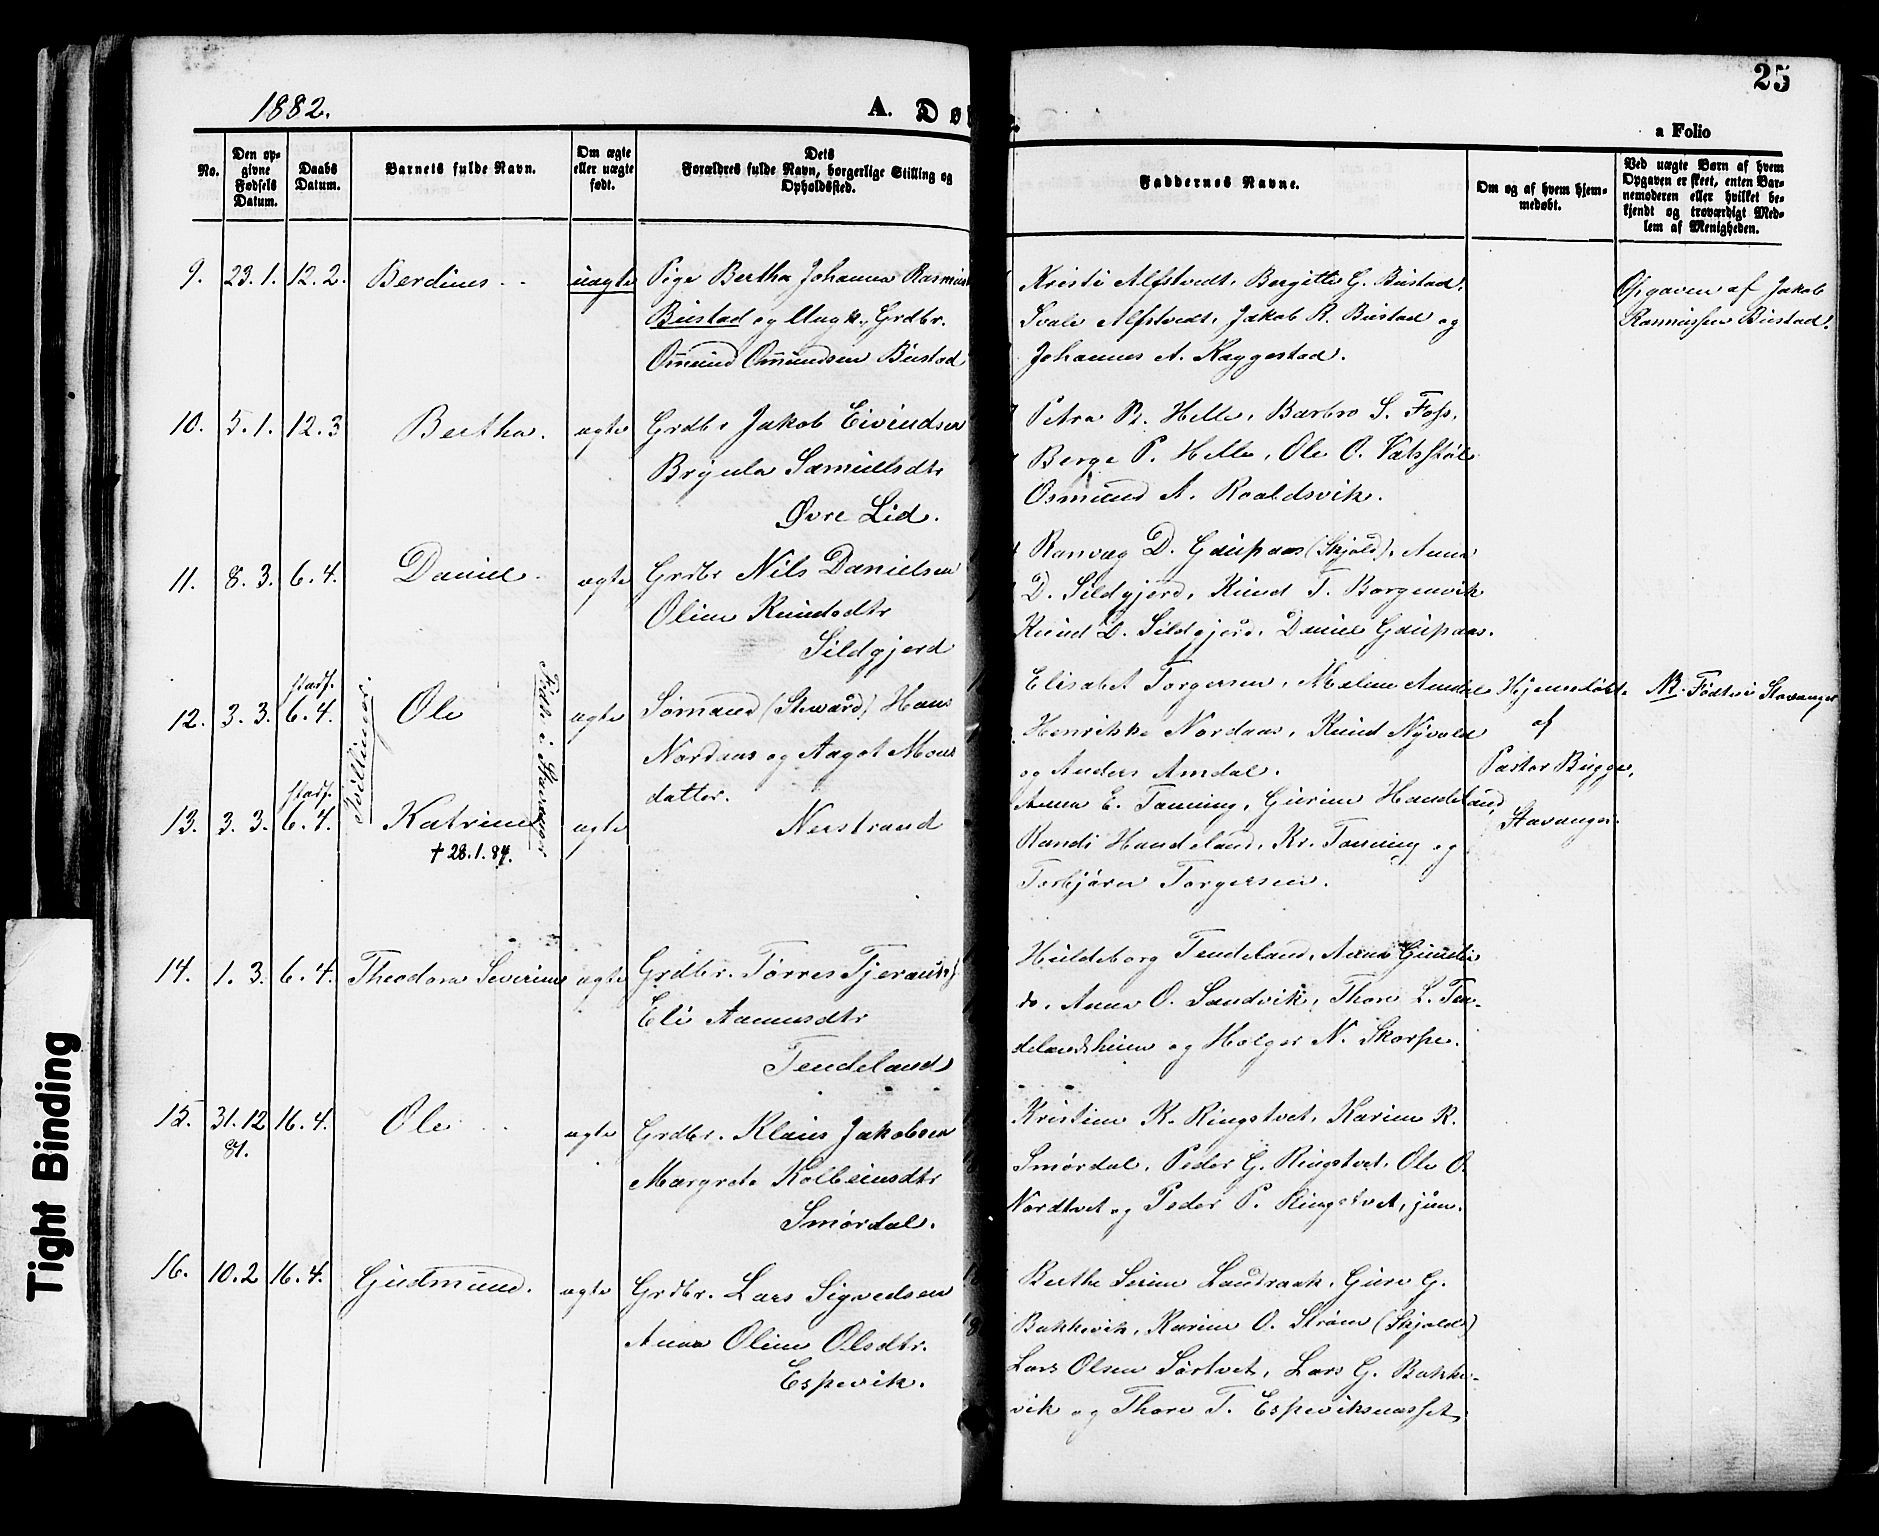 1882.
A. Dø
25
a Folio
No.
Den op-
givne
Fødsels
Datum.
Daabs
Datum.
Barnets fulde Navn.
Om ægte
eller uægte
født.
Dets
Forældres fulde Navn, borgerlige Stilling og
Opholdssted.
Faddernes Navne.
Om og af hvem hjem-
medøbt.
Ved uægte Børn af hvem
Opgaven er skeet, enten Bar-
nemoderen eller hvilket be-
kjendt og troværdigt Med-
lem af Menigheden.
9. 23.1. 12.2. Berdines uægte Pige Bertha Johanna Rasmus
Bustad og Ungk. Grdbr.
Omund Omundsen Bustad
Kristi Alfstvedt, Bergitte G. Bustad,
Svale Alfstvedt, Jakob R. Bustad og
Johannes A. Raggestad.
Opgaven af Jakob
Rasmussen Bustad.
10. 5.1. 12.3 Bertha. ægte Grdbr Jakob Eivindsen
Brynla Samuelsdtr
Øvre Lid.
Petra B. Helle, Barbro S. Foss,
Berge P. Helle, Ole O. Vatsstøl
Osmund A. Roaldsvik.
11. 8.3. 6.4. Daniel. ægte Grdbr Nils Danielsen
Oline Knudsdtr
Sildgjerd
Ranvæg D. Gaupaas (Skjold), Anna
D. Sildgjerd, Knud T. Borgenvik
Knud D. Sildgjerd, Daniel Gaupaas.
12. 3.3. stadf. 6.4. Ole ægte Sømand (Steward) Hans
Nordaas og Aagot Mons
datter.
Nerstrand
Tvillinger.
Født i Stavanger
Elisabet Torgersen, Malene Amdal
Henrikke Nordaas, Knud Nyvold
og Anders Amdal.
Hjemmedøbt
af
Pastor Bugge,
Stavanger.
NB. Født i Stavanger
13. 3.3. stadf. 6.4. Katrine ægte
† 28.1.84.
Anna E. Tanning, Gurine Handeland,
Randi Handeland, Kr. Tanning og
Torbjørn Torgersen.
14. 1.3. 6.4. Theodora Severine ægte Grdbr. Tørres Tjerands
Eli Aanensdtr
Tendeland
Huldeborg Tendeland, Anna Gunde
do, Anna O. Sandvik, Thore L. Ten-
delandsheim og Holger N. Skorpe.
15. 31.12 81. 16.4. Ole ægte Grdbr. Klaus Jakobsen
Margrete Kolbeinsdtr
Smørdal.
Kristine K. Ringstvet, Karine R.
Smørdal, Peder G. Ringstvet, Ole O.
Nordtvet og Peder P. Ringstvet, jun.
16. 10.2 16.4. Gudmund. ægte Grdbr. Lars Sigvedsen
Anna Oline Olsdtr.
Espevik.
Berthe Serine Landraak, Guro G.
Bakkevik, Karine O. Strøm (Skjold)
Lars Olsen Sørtvet, Lars G. Bakke-
vik og Thore T. Espeviksnæsset.
Tight Binding